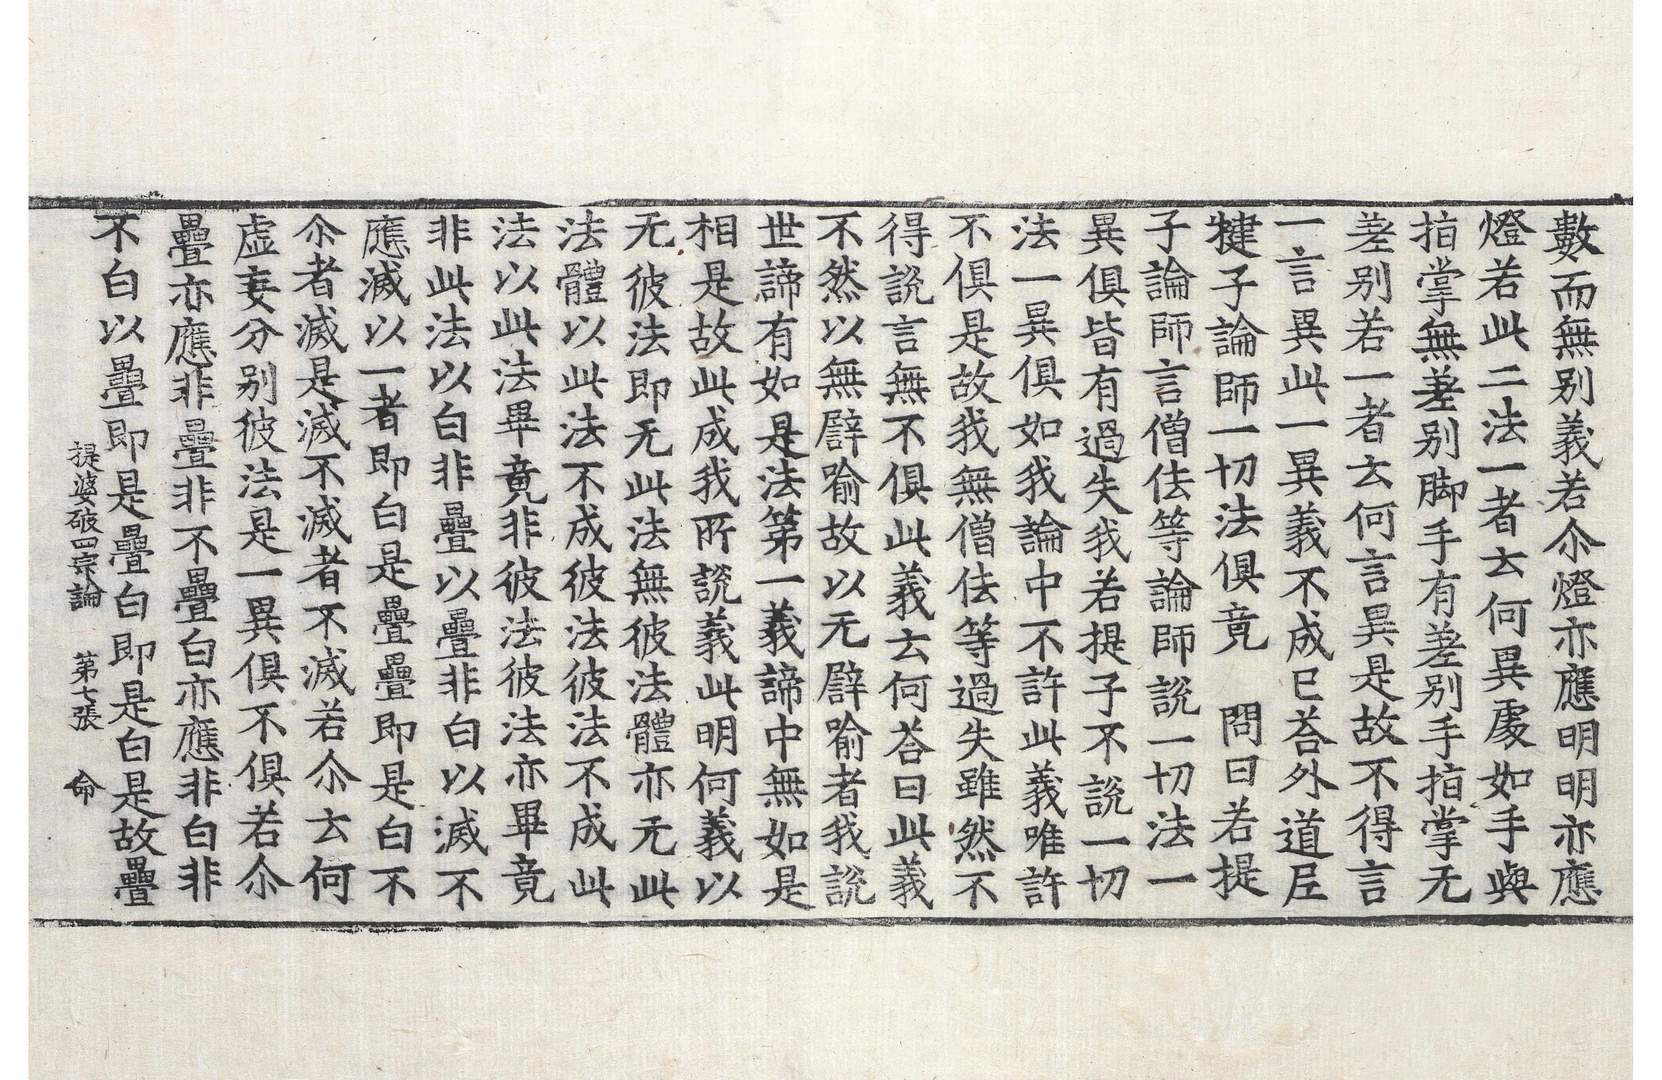 數而無别義若尒燈亦應明明亦應
燈若此二法一者云何異處如手與
指掌無差别脚手有差别手指掌无
差别若一者云何言異是故不得言
一言異此一異義不成已荅外道尼
揵子論師一切法俱竟　問曰若提
子論師言僧佉等論師說一切法一
異俱皆有過失我若提子不說一切
法一異俱如我論中不許此義唯許
不俱是故我無僧佉等過失雖然不
得說言無不俱此義云何荅曰此義
不然以無譬喻故以无譬喻者我說
世諦有如是法第一義諦中無如是
相是故此成我所說義此明何義以
无彼法即无此法無彼法體亦无此
法體以此法不成彼法彼法不成此
法以此法畢竟非彼法彼法亦畢竟
非此法以白非疊以疊非白以滅不
應滅以一者即白是疊疊即是白不
尒者滅是滅不滅者不滅若尒云何
虛妄分别彼法是一異俱不俱若尒
疊亦應非疊非不疊白亦應非白非
不白以疊即是疊白即是白是故疊
提婆破四宗論　第七張　命